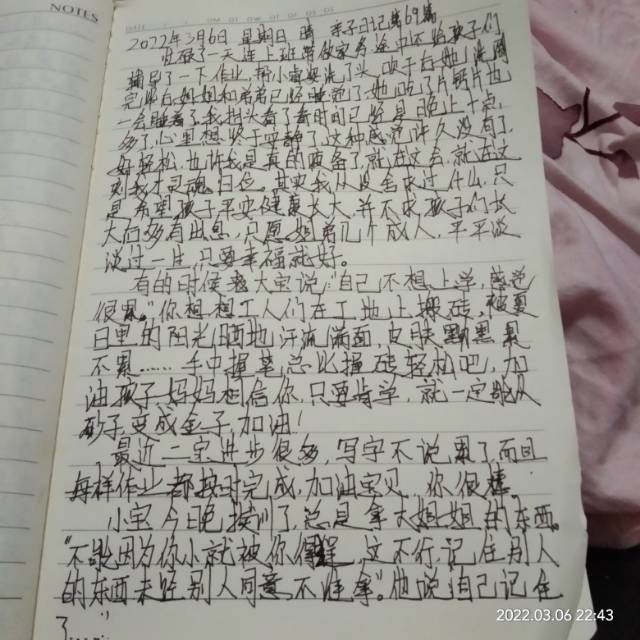 NOTES
DATE
2022年3月6日 星期日 晴 亲子日记第69篇
忙碌了一天连上班带做家务途中还给孩子们
辅导了一下作业,帮小宝宝洗了头,吹干后她
完后和姐姐和弟弟已经睡觉了她吃了片药片也
一会睡着了我抬头看了看时间已经是晚上十点
多了心里想终于安静了这种感觉许久没有了,
好轻松,也许我是真的
刻我才灵魂归位。其实我从没奢求过什么,只
是希望孩子平安健康长大,并不求孩子们长
大后多有出息,只愿姐弟几个成人,平平淡
淡过一生只要幸福就好。
有的时候我大宝说:"自己不想上学,感觉
很累。"你想想工人们在工地上搬砖,被夏
日里的阳光晒地汗流满面,皮肤黝黑累
不累……手中握笔总比握砖轻松吧,加
油孩子妈妈相信你,只要肯学,就一定能从
砂子变成金子加油!
最近二宝进步很多,写字不说累了而且
每样作业都按时完成,加油宝贝,你很棒。
小宝今日晚挨训了,总是拿大姐姐的东西。
"不能因为你小就被你,这不行,记住别人
的东西未经别人同意不准拿"。他说自己记住
了……"
2022.03.06 22:43